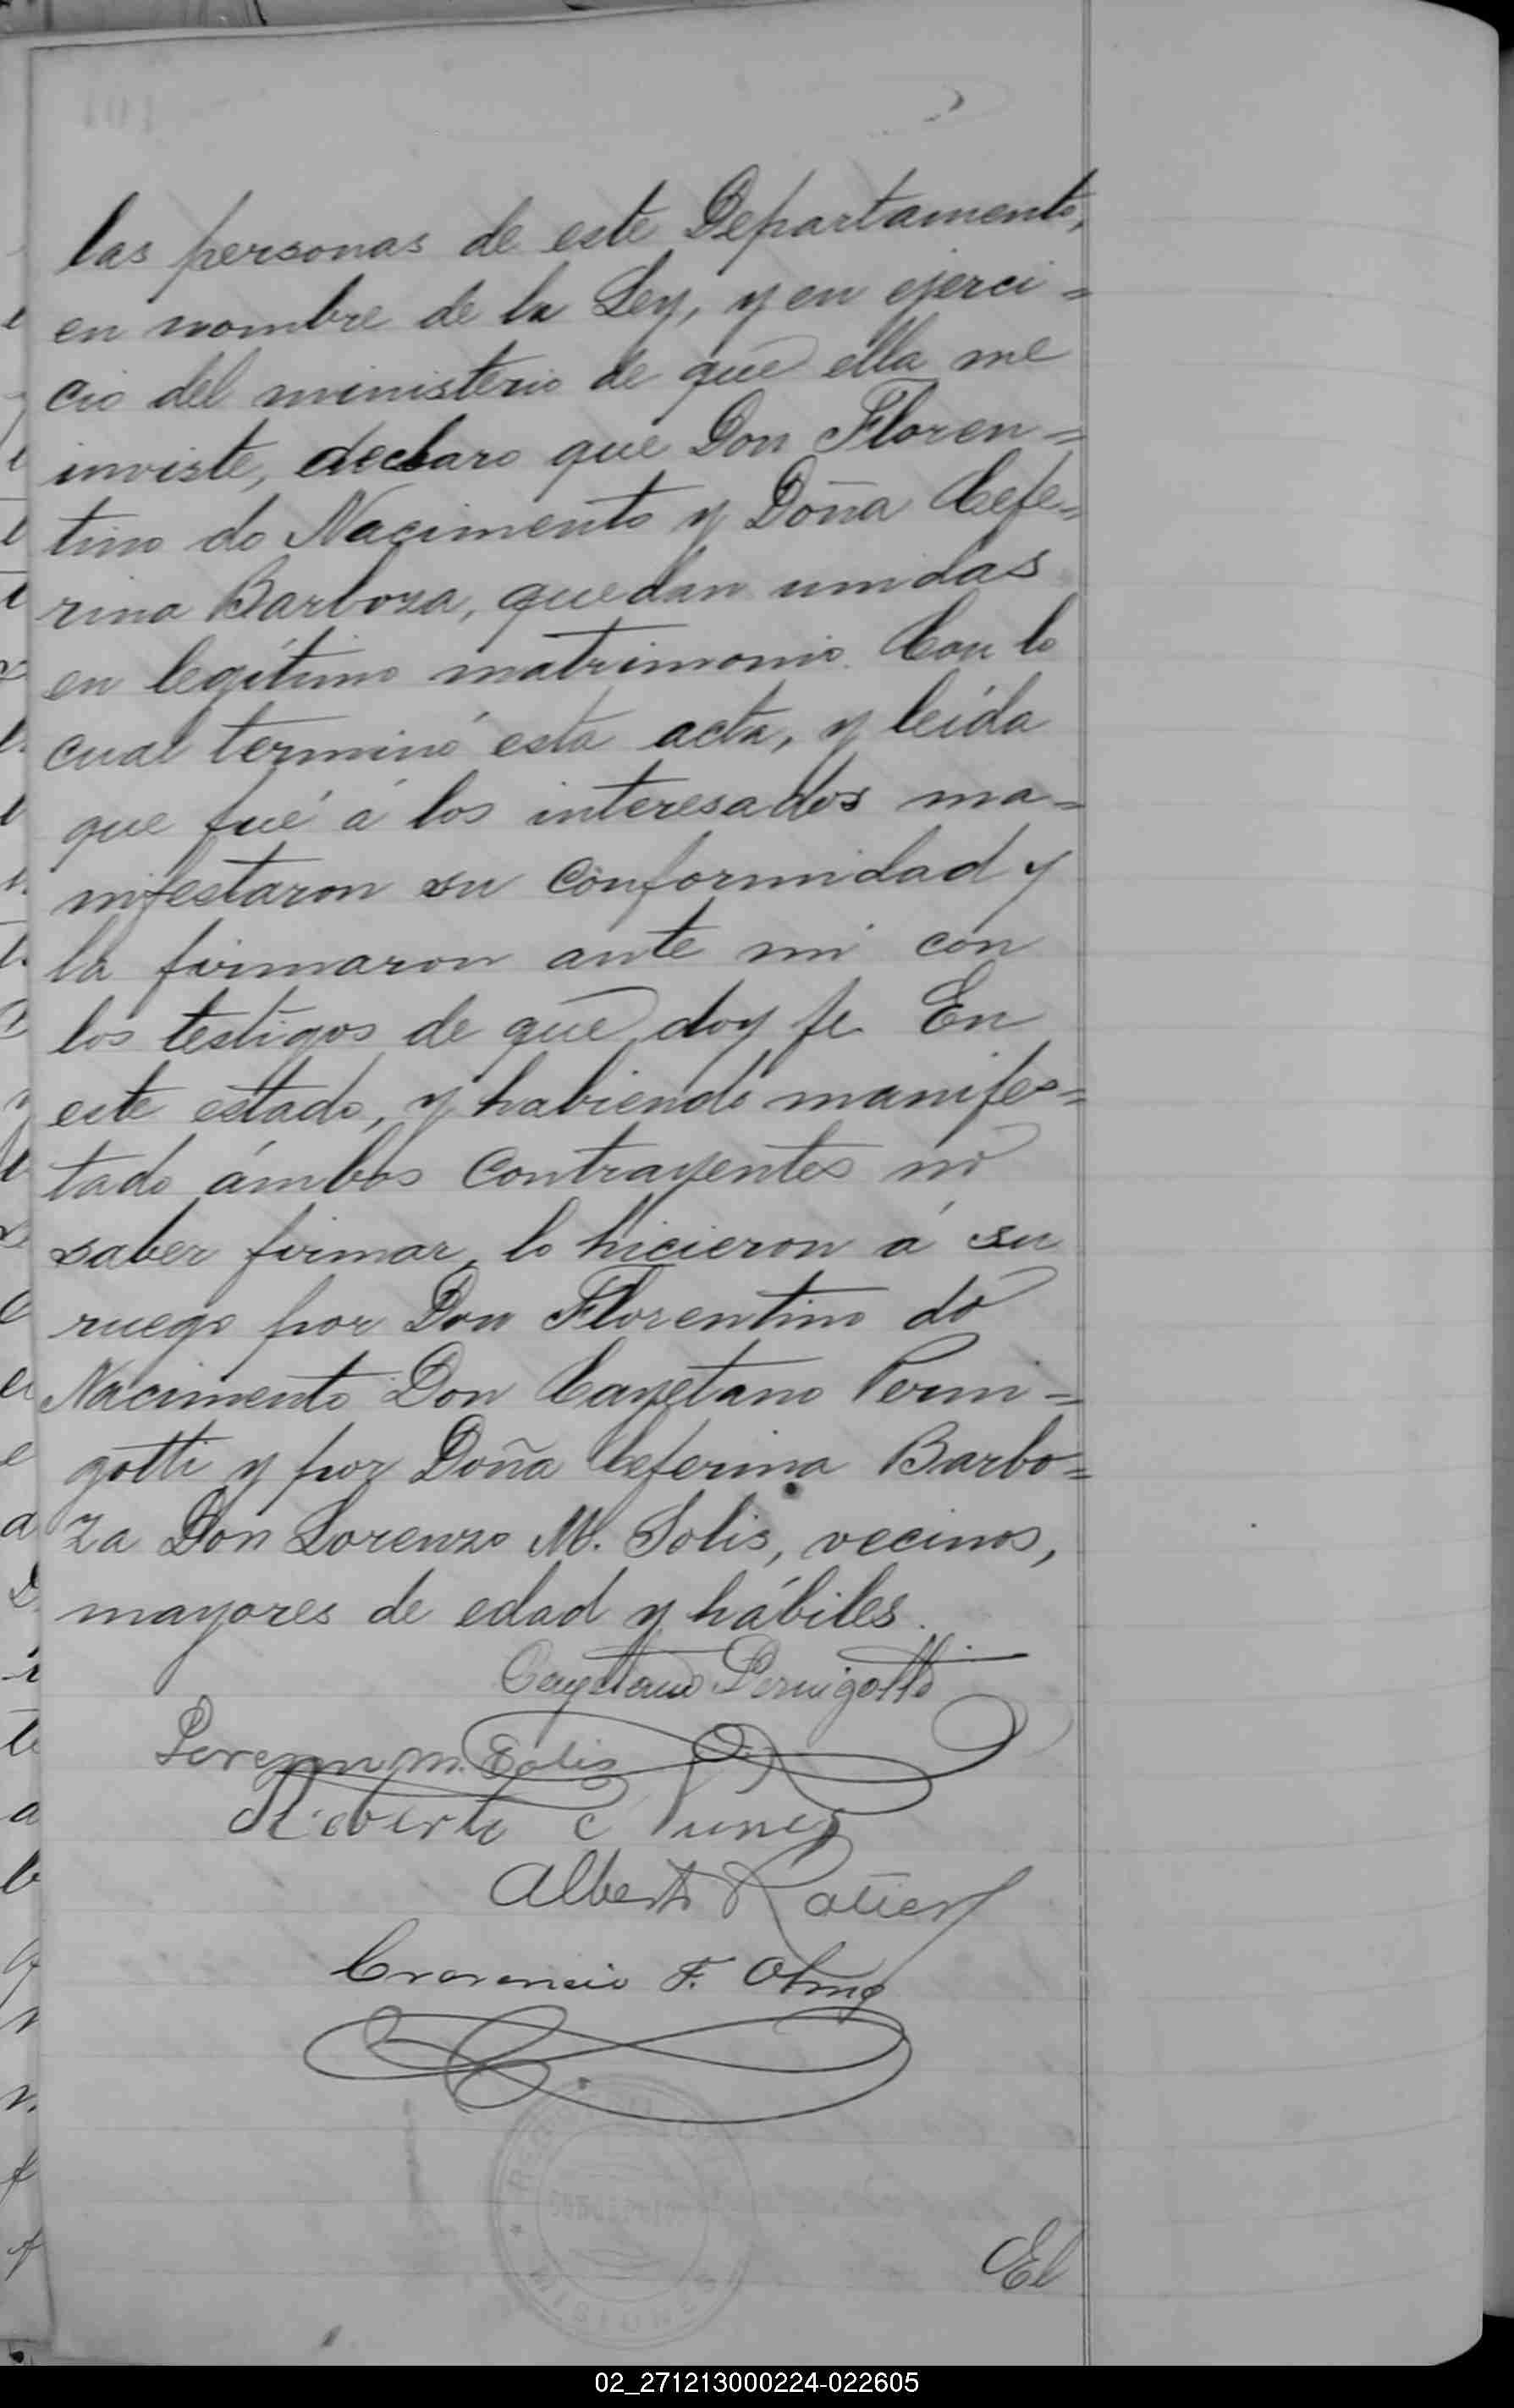 las personas de este Departamento,
en nombre de la Ley, y en ejerci=
cio del ministerio de que ella me
inviste, declaro que Don Floren=
tino do Nacimento y Doña Cefe=
rina Barboza, quedan unidas
en legítimo matrimonio. Con lo
cual terminó esta acta, y leida
que fué á los interesados ma=
nifestaron su conformidad y
la firmaron ante mi con
los testigos de que doy fe. En
este estado, y habiendo manifes=
tado ámbos contrayentes no
saber firmar, lo hicieron á su
ruego por Don Florentino do
Nacimento Don Cayetano Perni=
gotti y por Doña Ceferina Barbo=
za Don Lorenzo M. Solis, vecinos,
mayores de edad y hábiles.
Cayetano Pernigotti
Lorenzo M. Solis
Roberto C Nunez
Alberto
F. Olmo
MISIONES
El
02_271213000224-022605